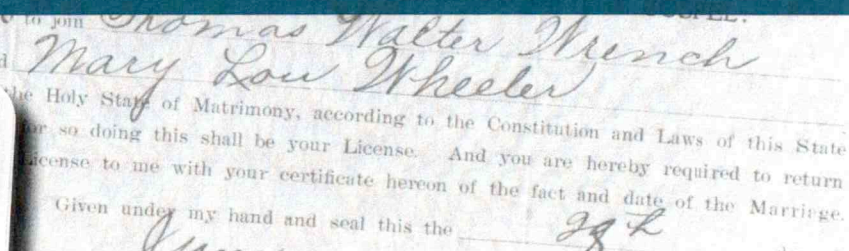 to join Thomas Walter Wrench
Mary Lou Wheeler
the Holy State of Matrimony, according to the Constitution and Laws of this State
for so doing this shall be your License. And you are hereby required to return
License to me with your certificate hereon of the fact and date of the Marriage.
Given under my hand and seal this the